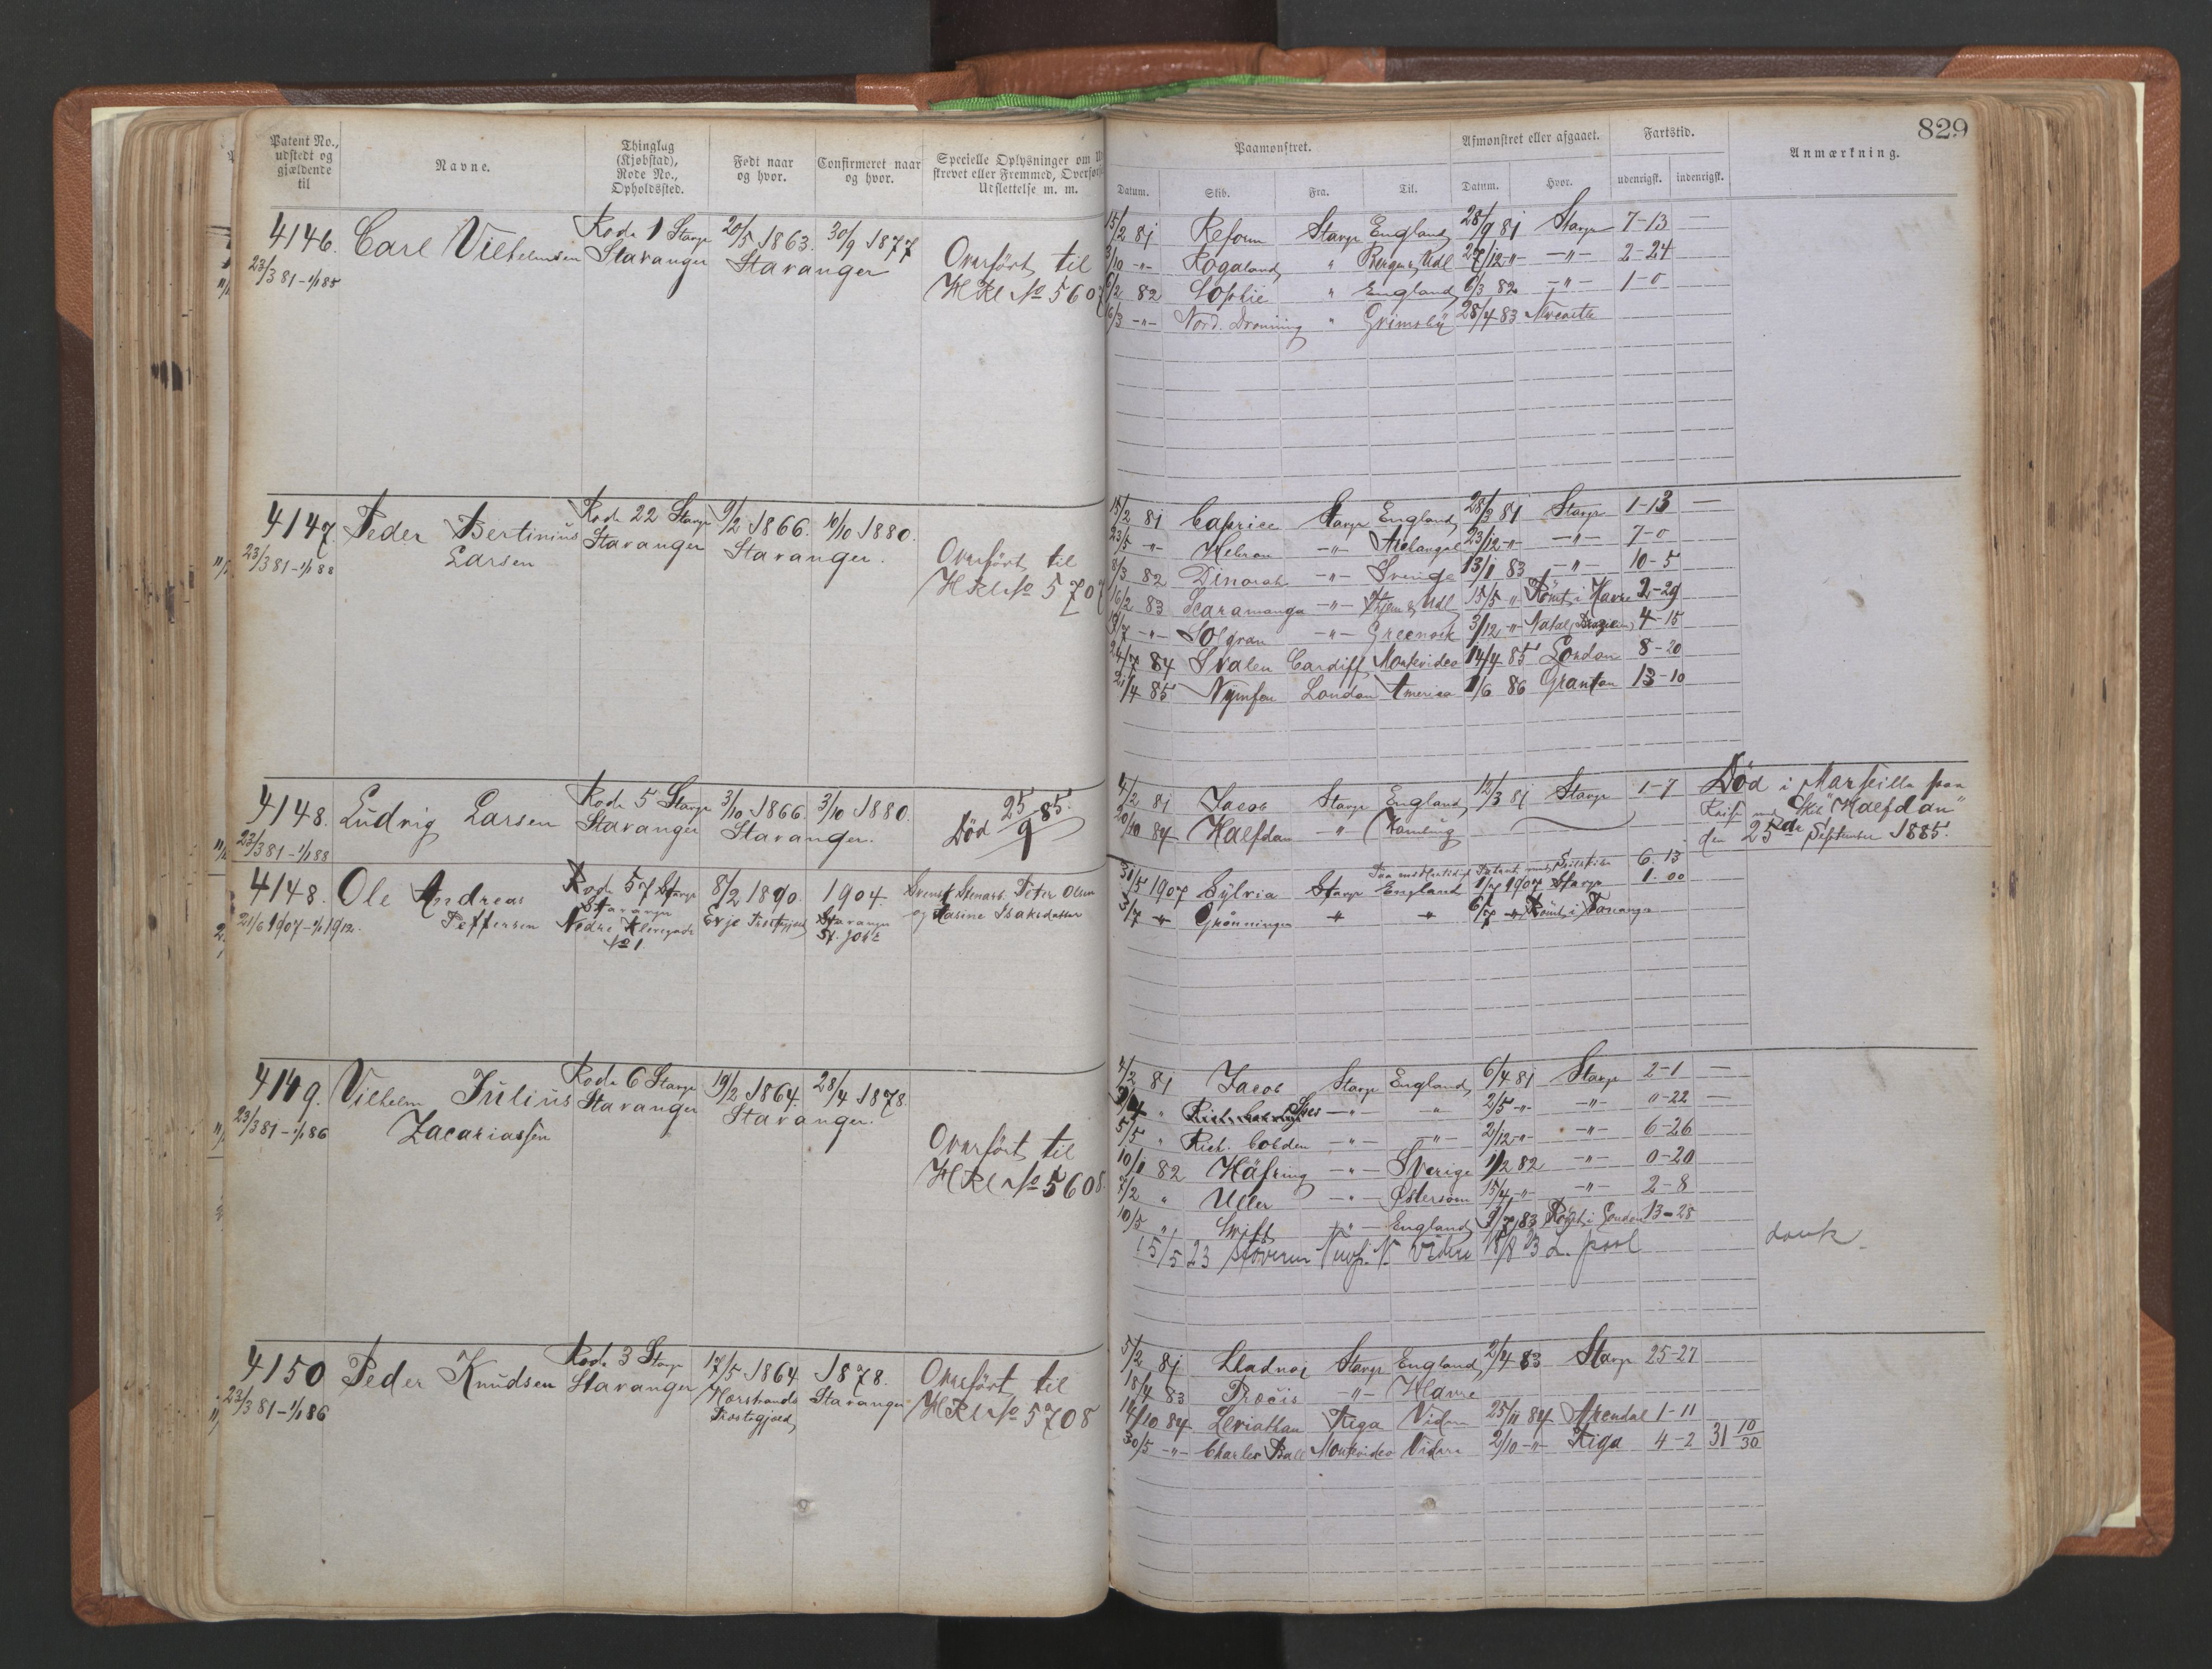 829
Patent No., udstedt og gjældende til
Navne.
Thinglag (Kjøbstad), Rode No., Opholdssted.
Født naar og hvor.
Confirmeret naar og hvor.
Specielle Oplysninger om
Udslettelse m. m.
Paamønstret.
Afmønstret eller afgaaet.
Fartstid.
Anmærkning.
Datum. Skib. Fra. Til. Datum. Hvor. udenrigsk. indenrigsk.
4146. Carl Vilhelmsen Rode 1 Stavgr 20/5 1863. 30/9 1877
23/3 81 - 1/1 85 Stavanger Stavanger
Overført til
HRl No 5607
15/2 81 Reform Stavgr England 28/9 81 Stavgr 7-13 —
3/10 -"- Rogaland " Bergen & Udl 27/12 -"- -"- 2-24
6/2 82 Sophie " England 6/3 82 -"- 1-0
16/3 -"- Nord. Dronning " Grimsby 28/4 83
4147 Peder Bertinius Rode 22 Stavgr 9/2 1866. 10/10 1880.
23/3 81 - 1/1 88 Larsen Stavanger Stavanger.
Overført til
HRl No 5707
15/2 81 Caprice Stavgr England 28/3 81 Stavgr 1-13 —
23/5 -"- Hebron -"- Archangel 23/12 -"- -"- 7-0
8/3 82 Dinorah -"- Sverige 13/1 83 -"- 10-5
16/2 83 Scaramanga -"- Udl 15/5 " Rømt i Havre 2-29
/7 -"- Solgran -"- Greenock 3/12 -"- Natal, 4-15
24/7 84 Svalen Cardiff Montevideo 14/4 85 London 8-20
21/4 85 Nymfen London America 1/6 86 Granton 13-10
4148. Ludvig Larsen Rode 5 Stavgr 3/10 1866. 3/10 1880.
23/3 81 - 1/1 88 Stavanger Stavanger.
Død 25/9 85.
4/2 81 Jacob Stavgr England 12/3 81 Stavgr 1-7
20/10 84 Halfdan -"- Hamburg
Død i Marseille paa
Reise med Skib "Halfdan"
den 25de September 1885.
4148. Ole Andreas Rode 57 Stavgr 8/2 1890. 1904.
21/6 1907 - 1/1 1912. Peffersen Stavanger
Nedre Klevegade No 1. Evje Præstegjæld Stavanger St. Joh.
Peter Olsen
og Rasine Isaksdatter
6. 13
31/5 1907 Sylvia Stavgr England 1/7 1907 Stavgr 1. 00
3/7 " Grønningen " " 6/7 " Rømt i Tananger
4149. Vilhelm Julius Rode 6 Stavgr 19/2 1864. 28/4 1878.
23/3 81 - 1/1 86 Zacariassen Stavanger Stavanger.
Overført til
HRl No 5608.
4/2 81 Jacob Stavgr England 6/4 81 Stavgr 2-1 —
" -"- " 2/5 -"- -"- "-22 —
5/5 " Rich. Cobden -"- -"- 2/12 -"- -"- 6-26
10/1 82 Häfring -"- Sverige 1/2 82 -"- 0-20
7/2 " Uller -"- Østersøen 15/4 -"- -"- 2-8
10/5 " Swift -"- England 9/7 83 Rømt i London 13-28
15/5 23 L.pool
4150 Peder Knudsen Rode 3 Stavgr 17/5 1864. 1878.
23/3 81 - 1/1 86 Stavanger Stavanger
Præstegjæld
Overført til
HRl No 5708
5/2 81 Ladnor Stavgr England 2/4 83 Stavgr 25-27
18/4 83 Precis -"- Havre
14/10 84 Leviathan Riga Videre 25/11 84 Arendal 1-11
30/5 -"- Charles Ball Montevideo Videre 2/10 -"- Riga 4-2 31 10/30